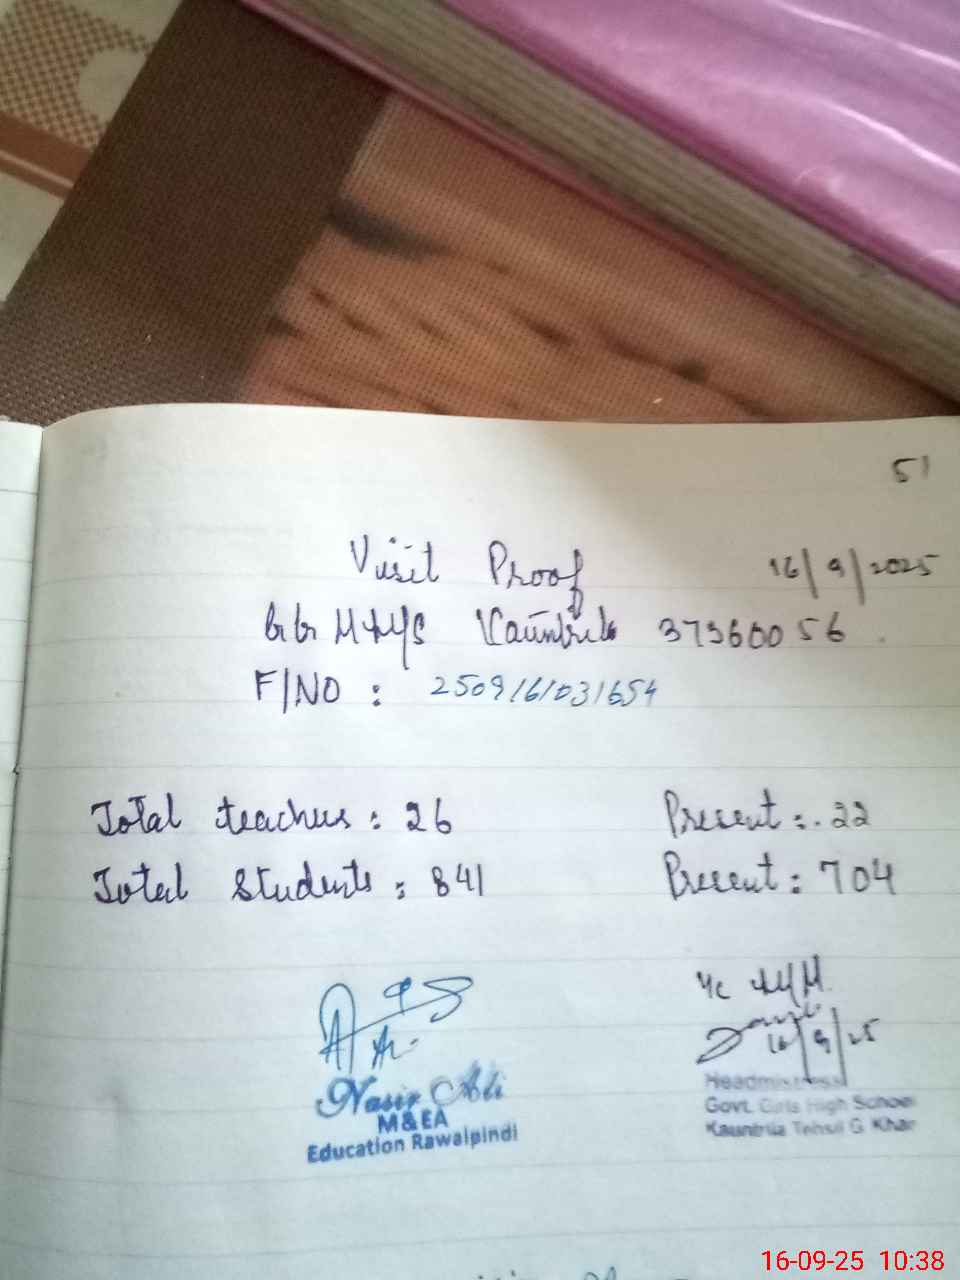 51
Visit Proof 16/9/2025
Kauntrila 37360056
F/NO : 2509161031654
Total teachers : 26 Present : 22
Total Students : 841 Present : 704
I/C
16/9/25
Nasir Ali
M&EA
Education Rawalpindi
Headmistress
Govt. Girls High School
Kauntrila Tehsil G. Khan
16-09-25 10:38